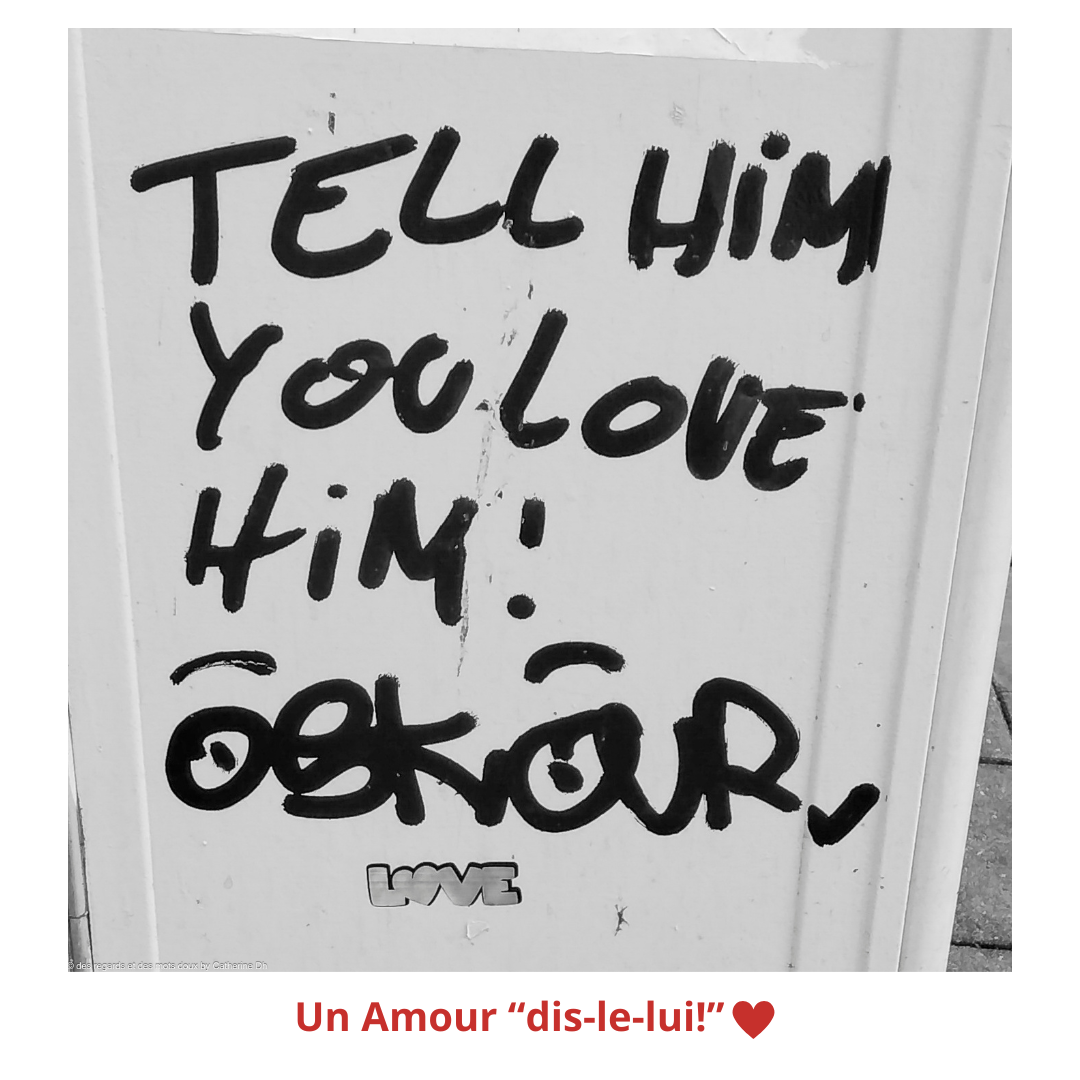 TELL HiM
YOU LOVE
HiM!
OSKOUR
LOVE
© des regards et des mots doux by Catherine Dh
Un Amour “dis-le-lui!”